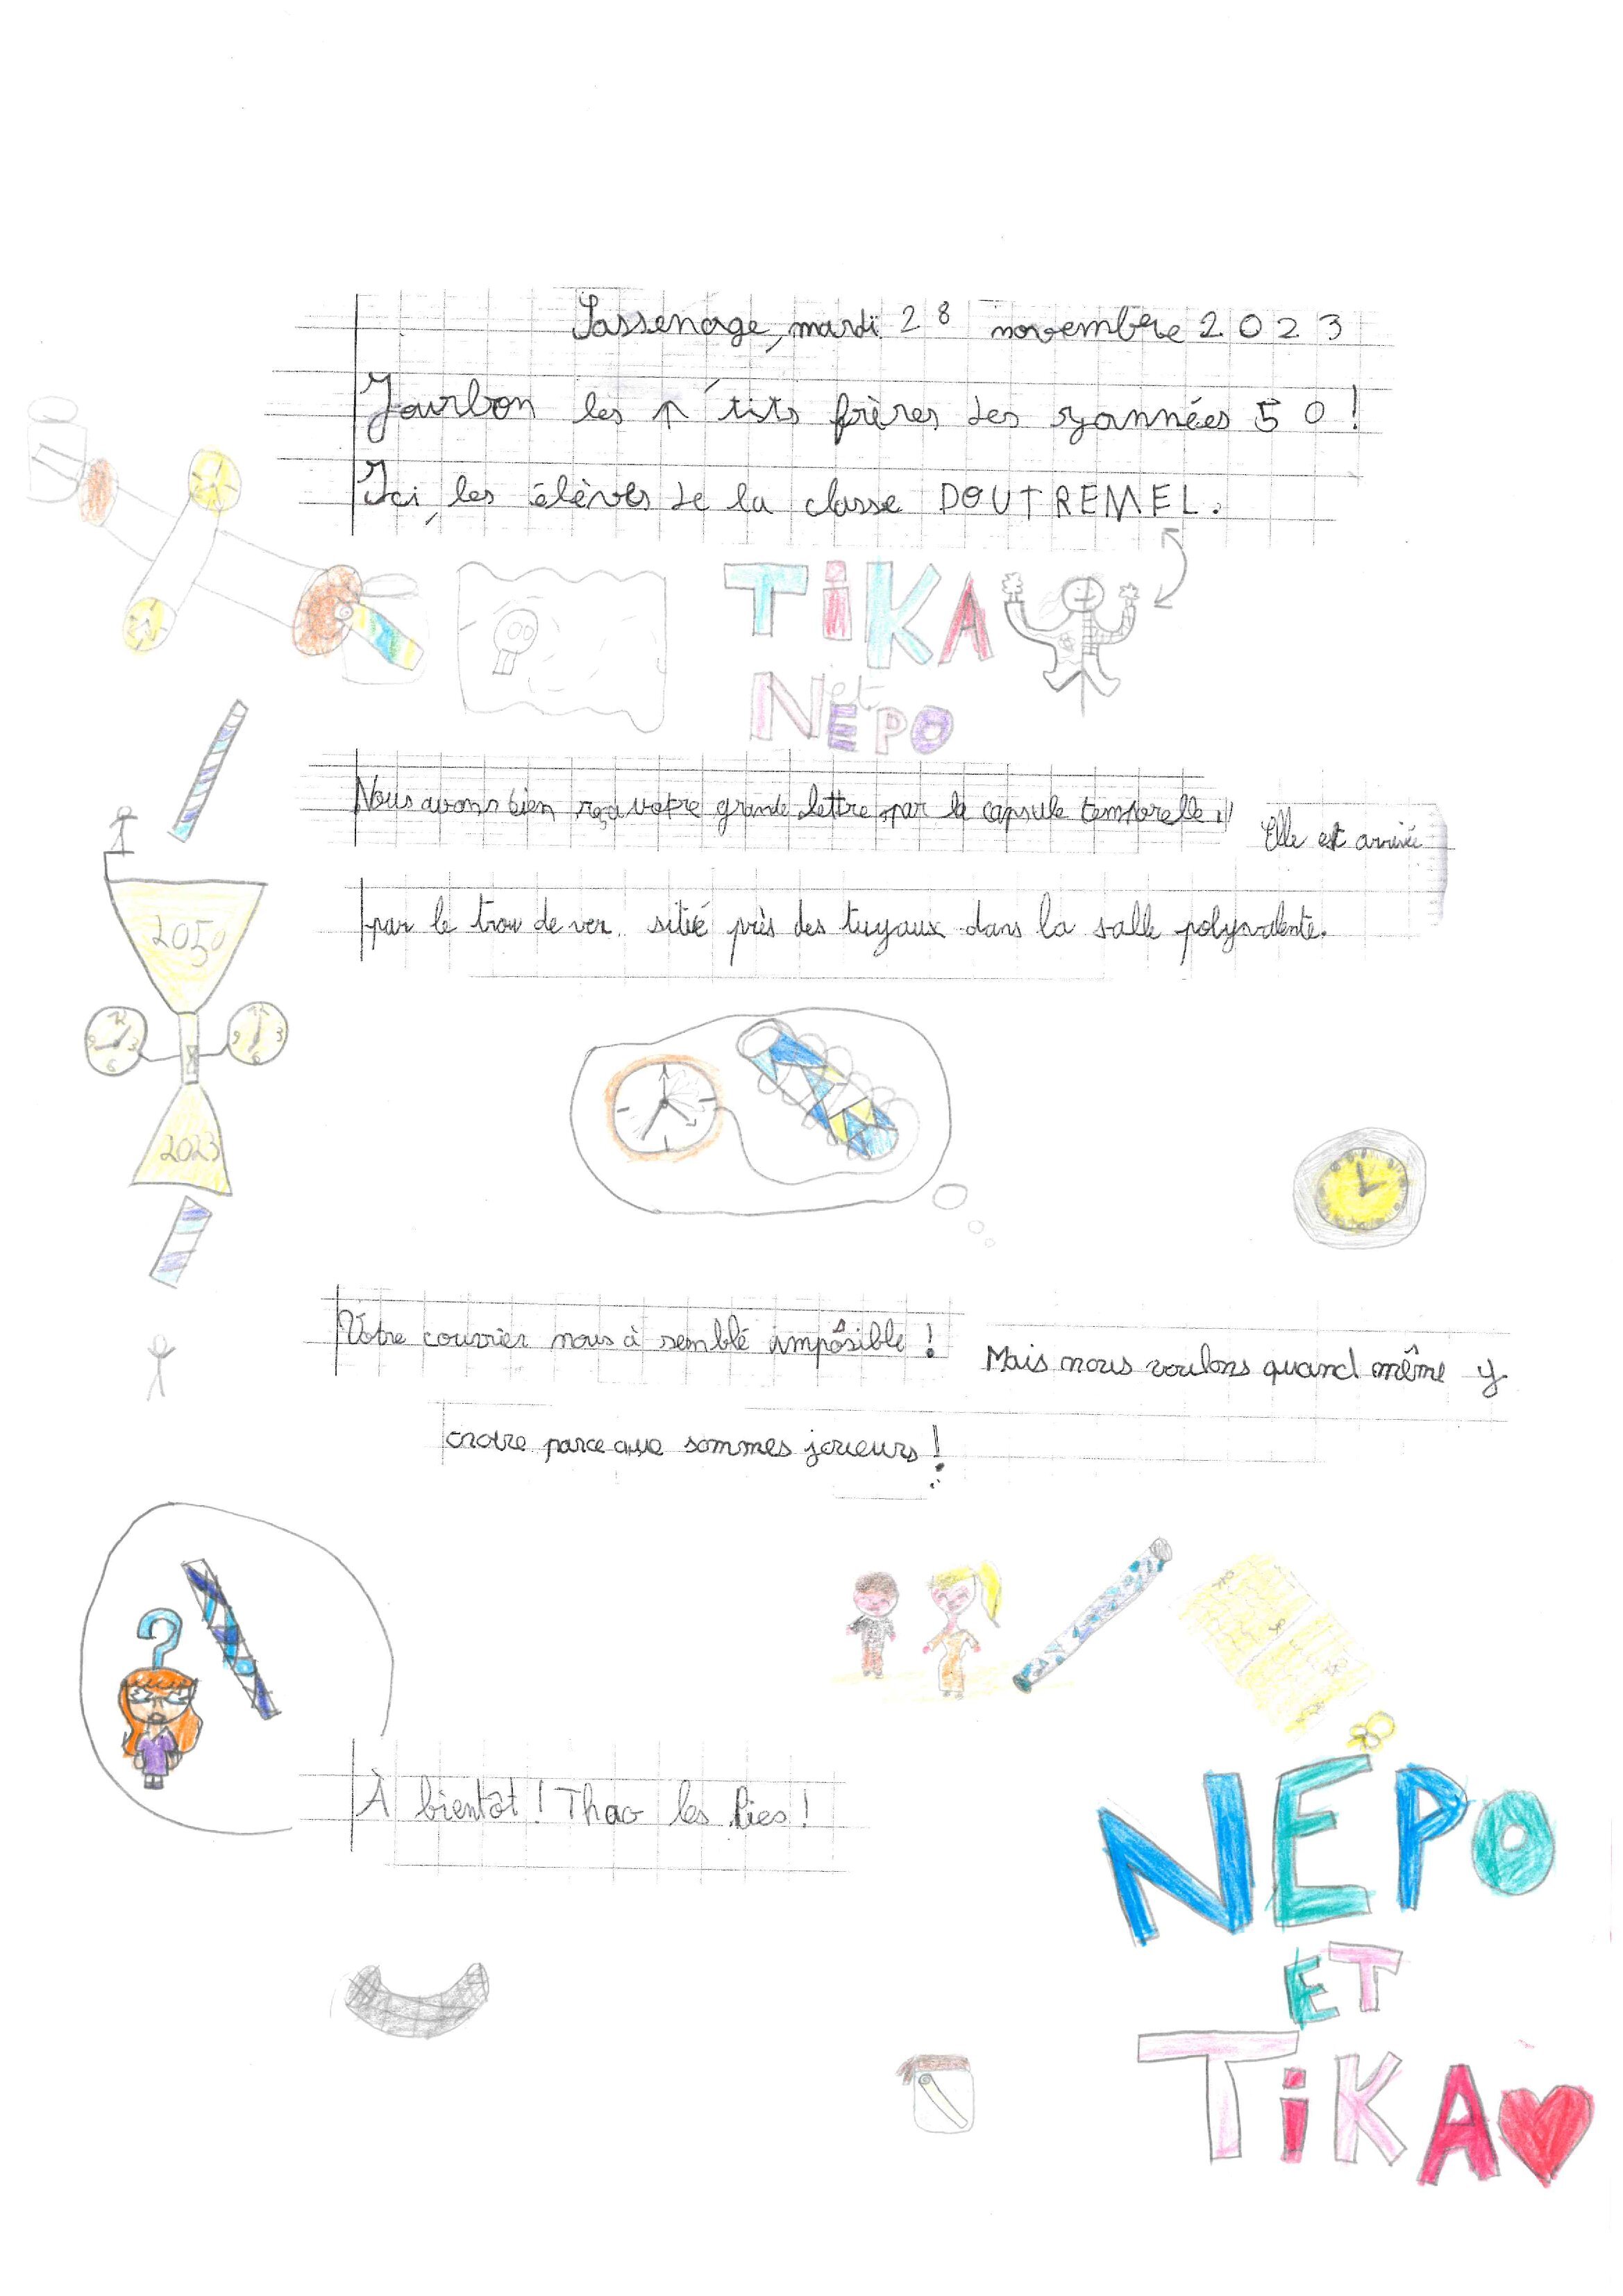 Sassenage, mardi 28 novembre 2023
Jourbon les p'tits frères des zannées 50!
Ici, les élèves de la classe DOUTREMEL.
TiKA
et
NEPO
Nous avons bien reçu votre grande lettre par la capsule temporelle !!
Elle est arrivée
par le trou de ver situé près des tuyaux dans la salle polyvalente.
2050
12
9 3
6
12
9 3
6
2023
Votre courrier nous à semblé impossible !
Mais nous voulons quand même y
croire parce que sommes joueurs !
?
À bientôt ! Thao les lies !
NÉPO
ET
TiKA